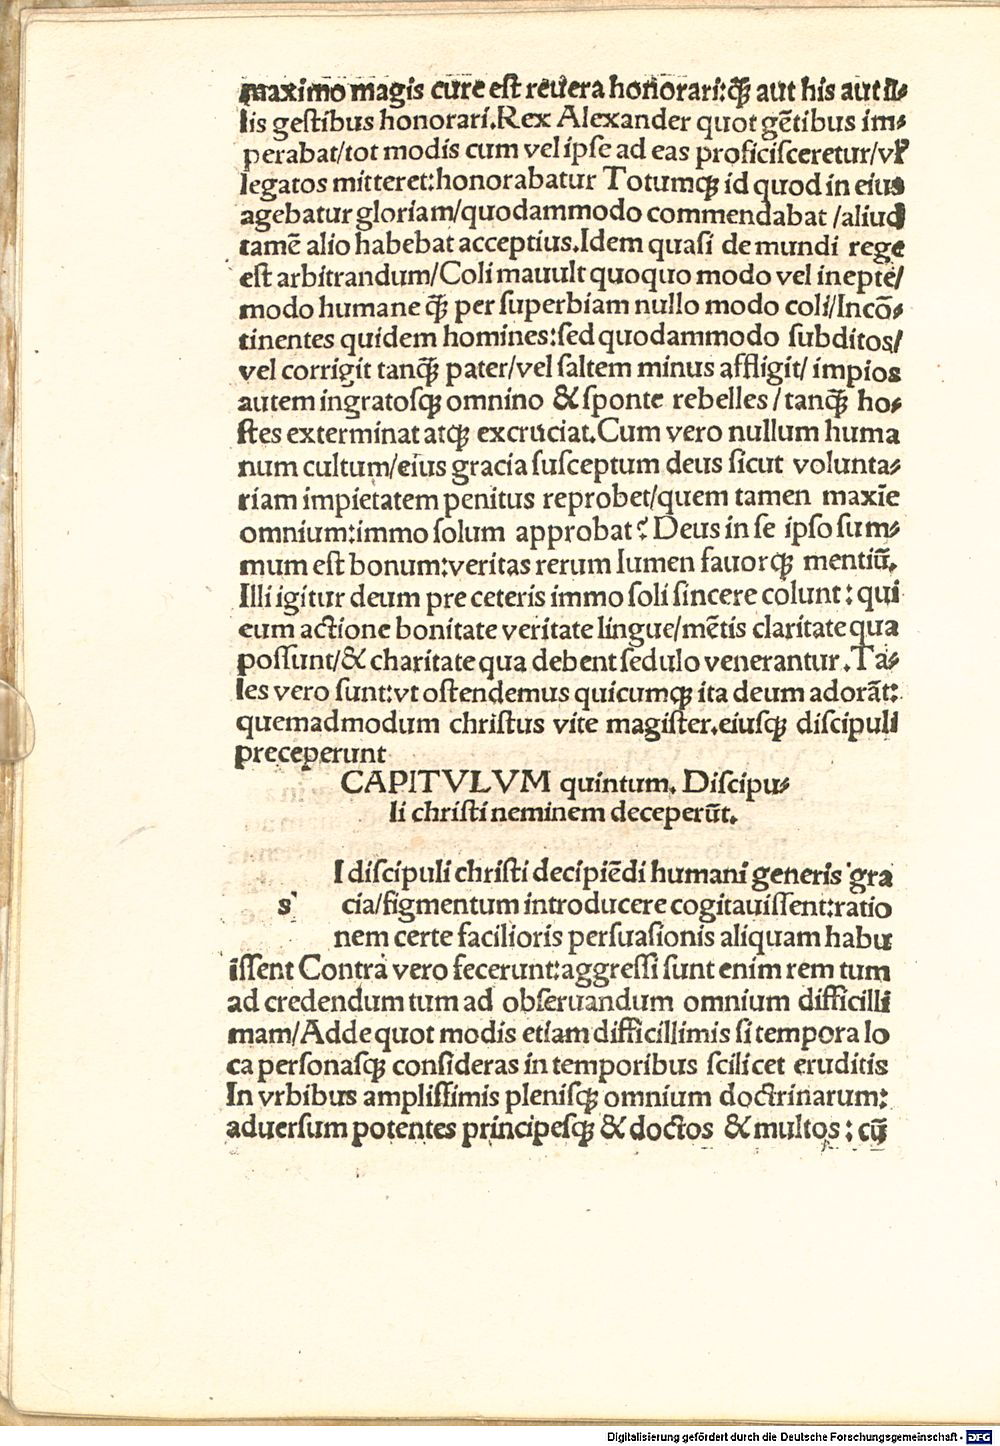 maximo magis cure est reuera honorari:ꝙ̃ aut his aut il⸗
lis gestibus honorari.Rex Alexander quot gẽtibus im⸗
perabat/tot modis cum vel ipse ad eas proficisceretur/vł
legatos mitteret:honorabatur Totumqꝫ id quod in eius
agebatur gloriam/quodammodo commendabat /aliud
tamẽ alio habebat acceptius.Idem quasi de mundi rege
est arbitrandum/Coli mauult quoquo modo vel inepte/
modo humane ꝙ̃ per superbiam nullo modo coli/Incõ⸗
tinentes quidem homines:sed quodammodo subditos/
vel corrigit tanꝙ̃ pater/vel saltem minus affligit/ impios
autem ingratosqꝫ omnino & sponte rebelles/tanꝙ̃ ho⸗
stes exterminat atqꝫ excruciat.Cum vero nullum huma
num cultum/eius gracia susceptum deus sicut volunta⸗
riam impietatem penitus reprobet/quem tamen maxĩe
omnium:immo solum approbat? Deus in se ipso sum⸗
mum est bonum:veritas rerum lumen fauorqꝫ mentiũ.
Illi igitur deum pre ceteris immo soli sincere colunt:qui
eum actione bonitate veritate lingue/mẽtis claritate qua
possunt/& charitate qua debent sedulo venerantur.Ta⸗
les vero sunt:vt ostendemus quicumqꝫ ita deum adorãt:
quemadmodum christus vite magister.eiusqꝫ discipuli
preceperunt
CAPITVLVM quintum. Discipu⸗
li christi neminem deceperũt.
I discipuli christi decipiẽdi humani generis gra
s cia/figmentum introducere cogitauissent:ratio
nem certe facilioris persuasionis aliquam habu
issent Contra vero fecerunt:aggressi sunt enim rem tum
ad credendum tum ad obseruandum omnium difficilli
mam/Adde quot modis etiam difficillimis si tempora lo
ca personasqꝫ consideras in temporibus scilicet eruditis
In vrbibus amplissimis plenisqꝫ omnium doctrinarum:
aduersum potentes principesqꝫ & doctos & multos:cũ
Digitalisierung gefördert durch die Deutsche Forschungsgemeinschaft - DFG